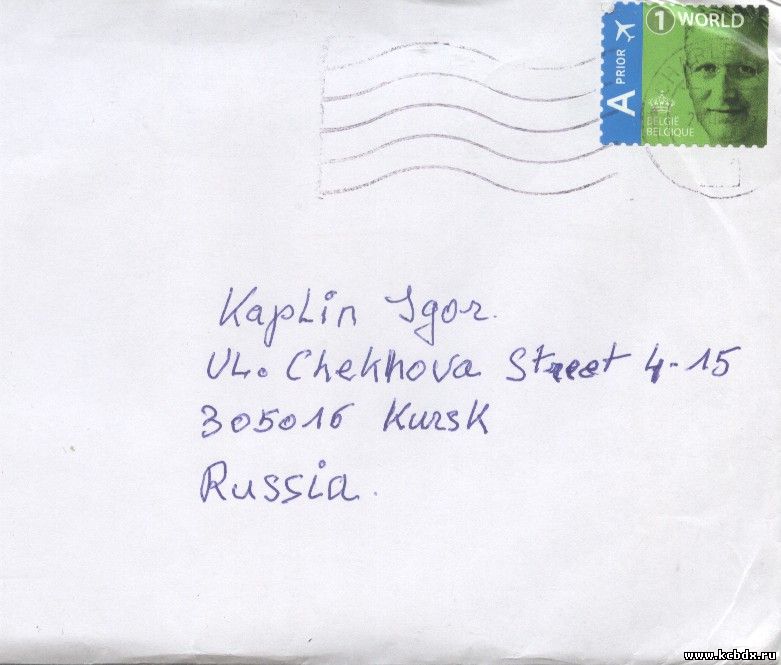 A PRIOR
1 WORLD
BELGIE
BELGIQUE
Kaplin Igor.
UL. Chekhova Street 4-15
305016 Kursk
Russia.
www.kcbdx.ru